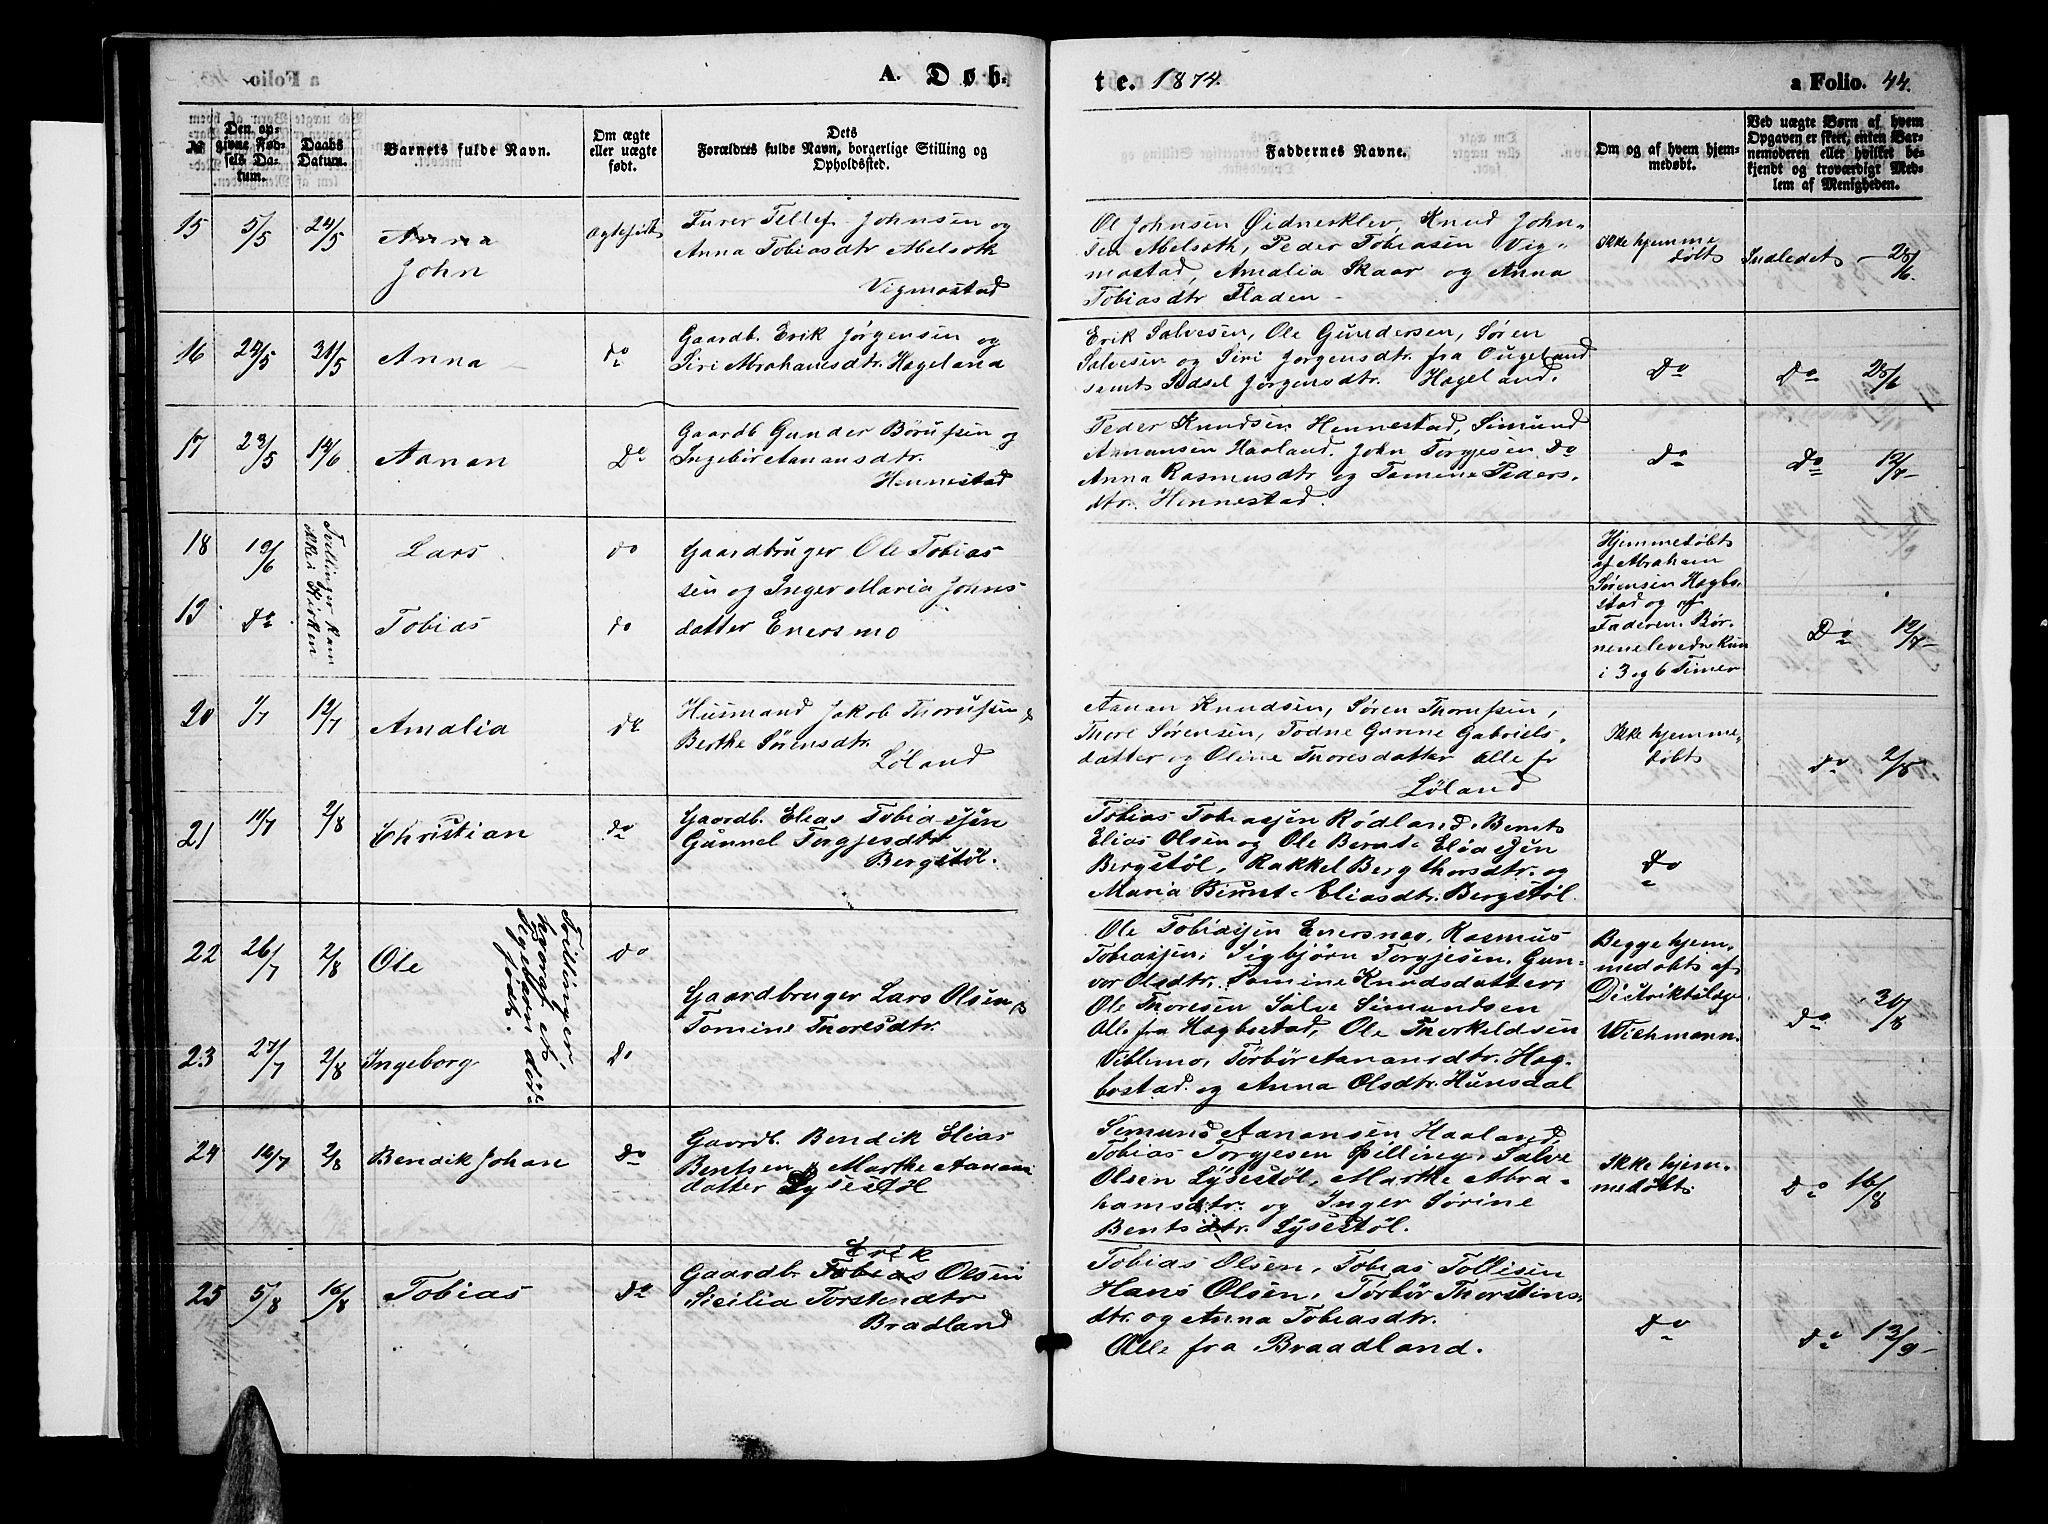 A. Døb-
te. 1874.
a Folio. 44.
№
Den op-
givne Fød-
sels Da-
tum.
Daabs
Datum.
Barnets fulde Navn.
Om ægte
eller uægte
født.
Dets
Forældres fulde Navn, borgerlige Stilling og
Opholdssted.
Faddernes Navne.
Om og af hvem hjem-
medøbt.
Ved uægte Børn af hvem
Opgaven er skeet, enten Bar-
nemoderen eller hvilket be-
kjendt og troværdigt Med-
lem af Menigheden.
15 5/5 24/5 Anna
John
Ægtefødt
Furer Tellef Johnsen og
Anna Tobiasdtr Abelsoth
Vigmostad
Ol Johnsen Øidnesklev, Knud John-
sen Abelsoth, Peder Tobiasen Vig-
mostad, Amalia Skaar og Anna
Tobiasdtr Fladen
Ikke hjemme
døbt
Indledet 28/6
16 24/5 31/5 Anna do
Gaardb. Erik Jørgensen og
Siri Abrahamsdtr. Hageland
Erik Salvesen, Ole Gundersen, Søren
Salvesen og Siri Jørgensdtr. fra Ougeland
samt Sidsel Jørgensdtr. Hageland.
Do
Do 28/6
17 23/5 14/6 Aanen Do
Gaardb Gunder Børufsen og
Ingebor Aanansdtr.
Hennestad
Peder Knudsen Hennestad, Simund
Aanansen Haaland. John Torgjesen Do
Anna Rasmusdtr og Tomine Peders-
dtr. Hennestad.
Do
Do 12/7
18 19/6 Lars do
Tvillinger kom
ikke i Kirken
Gaardbruger Ole Tobias
sen og Inger Maria Johns
datter Enersmo
19 do Tobias do
Hjemmedøbt
af Abraham
Sørensen Hægbo-
stad og af
Faderen. Bør-
nene levede kun
i 3 og 6 Timer
Do 12/7
20 1/7 12/7 Amalia do
Husmand Jakob Thorufsen &
Berthe Sørensdtr.
Løland
Aanan Knudsen, Søren Thorufsen,
Thore Sørensen, Todne Gunne Gabriels-
datter og Oline Thoresdatter alle fr
Løland
Ikke hjemme-
døbt
do 2/8
21 11/7 2/8 Christian do
Gaardb. Elias Tobiassen
Gunnel Torgjesdtr
Bergstøl.
Tobias Tobiassen Rødland. Bernt
Elias Olsen og Ole Bernt Eliassen
Bergstøl, Rakkel Bergthorsdtr. og
Maria Bernt-Eliasdtr. Bergstøl.
Do
22 26/7 2/8 Ole do
Tvillinger
hvoraf et
Pigebarn død-
født.
Gaardbruger Lars Olsen &
Tomine Thoresdtr.
Ole Tobiassen Enersmo, Rasmus
Tobiassen, Sigbjørn Torgjesen, Gun-
vor Olsdtr. Tomine Knudsdatter,
Ole Thoresen Salve Simundsen
Alle fra Hægbostad, Ole Therkeldsen
Viblemo, Torbør Aanansdtr. Hæg-
bostad og Anna Olsdtr. Hunsdal
Begge hjem-
medøbt af
Distriktslæge
Wichmann.
do 30/8
23 27/7 2/8 Ingeborg Do
24 14/7 2/8 Bendik Johan Do
Gaardb. Bendik Elias
Bentsen & Marthe Aanan
datter Lysestøl
Simund Aanansen Haaland,
Tobias Torgjesen Øilling, Salve
Olsen Lysestøl, Marthe Abra-
hamsdtr. og Inger Sørine
Bentsdtr. Lysestøl.
Ikke hjem-
medøbt
do 16/8
25 5/8 16/8 Tobias Do
Erik
Gaardb. Tobias Olsen
Sicilia Torstendtr
Bradland
Tobias Olsen, Tobias Tollisen
Hans Olsen, Torbør Thorstins-
dtr. og Anna Tobiasdtr.
Alle fra Braadland.
Do
do 13/9